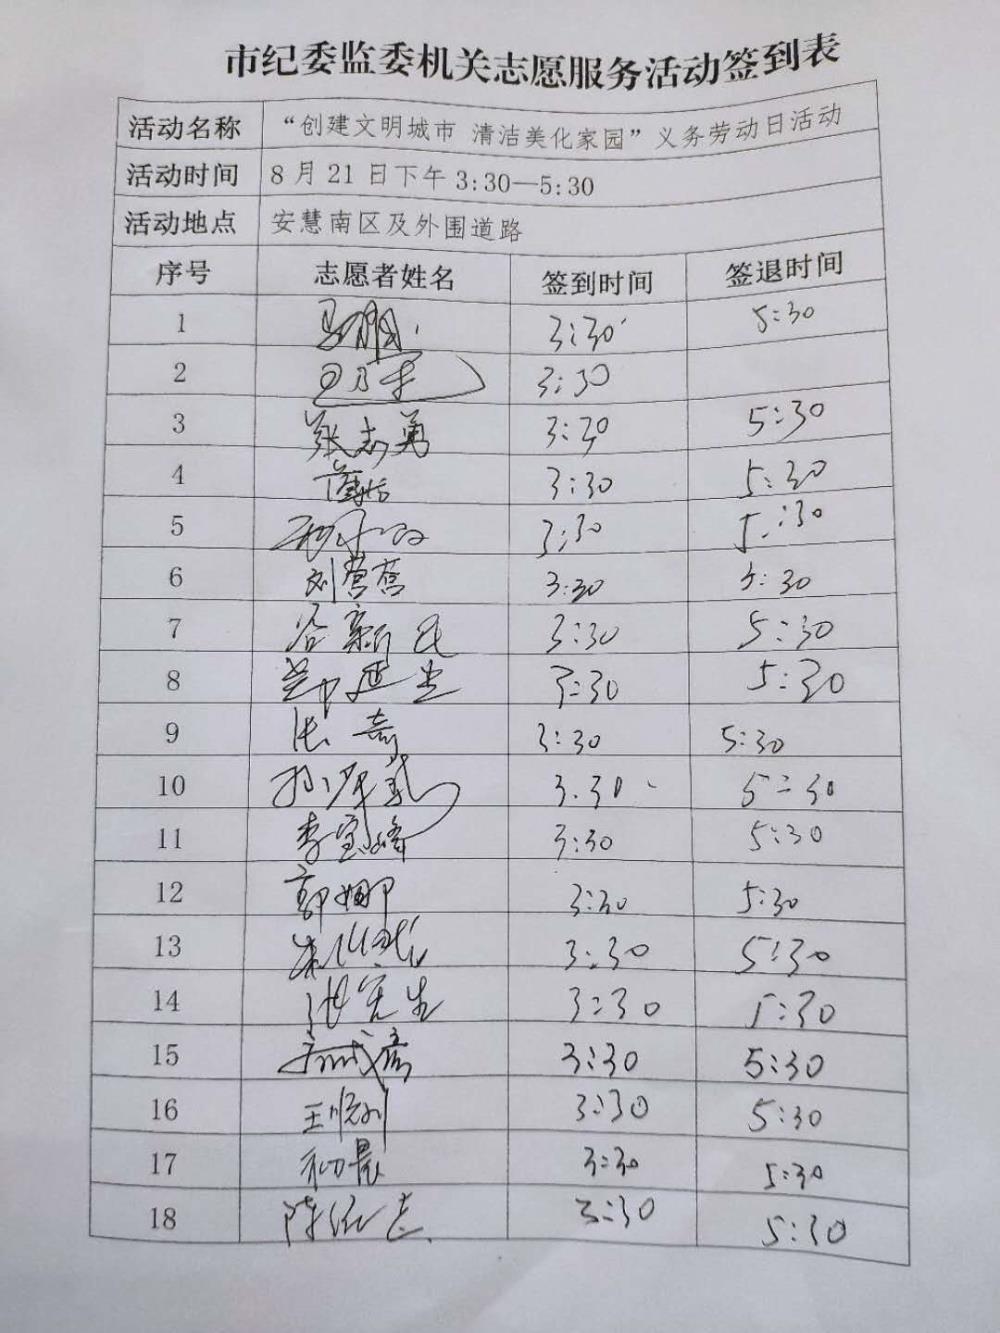 市纪委监委机关志愿服务活动签到表
活动名称 “创建文明城市 清洁美化家园”义务劳动日活动
活动时间 8月21日下午3:30—5:30
活动地点 安慧南区及外围道路
序号 志愿者姓名 签到时间 签退时间
1 3:30 5:30
2 3:30
3 张志勇 3:30 5:30
4 3:30 5:30
5 3:30 5:30
6 刘营营 3:30 5:30
7 谷新民 3:30 5:30
8 3:30 5:30
9 张奇 3:30 5:30
10 3.30 5:30
11 李宝峰 3:30 5:30
12 郭娜 3:30 5:30
13 3:30 5:30
14 张宪生 3:30 5:30
15 3:30 5:30
16 王顺利 3:30 5:30
17 3:30 5:30
18 3:30 5:30